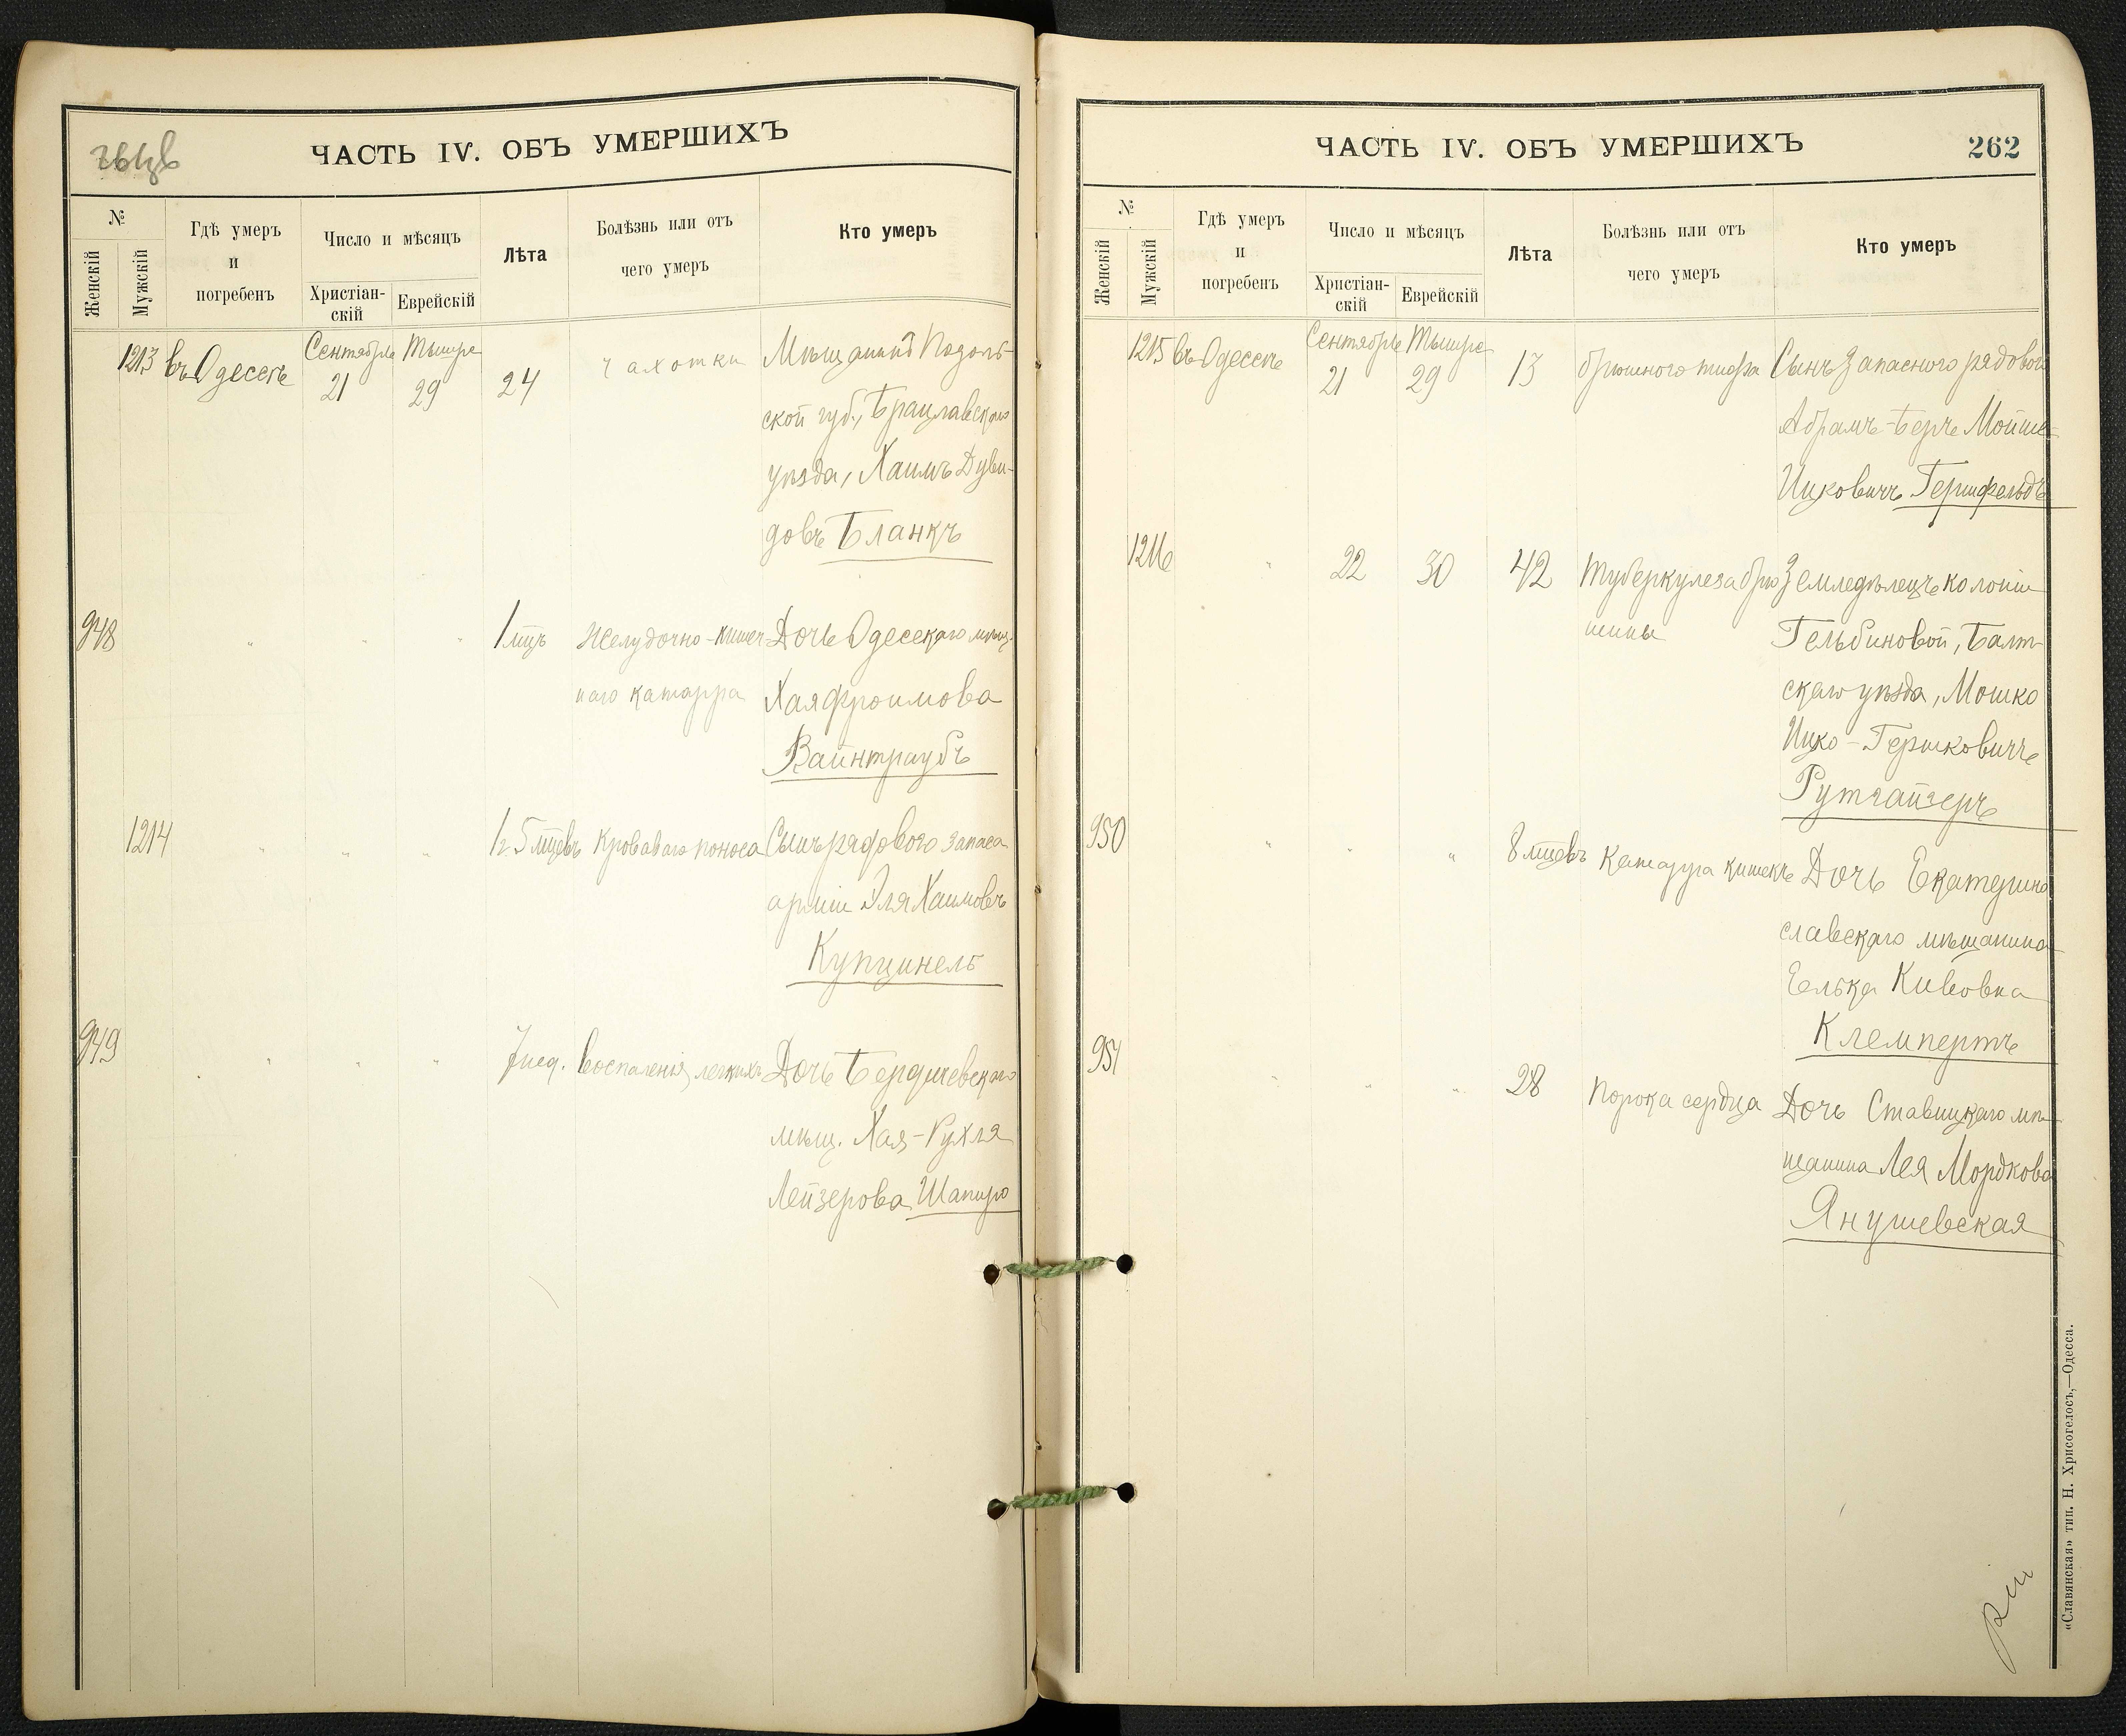 ЧАСТЬ IV. ОБЪ УМЕРШИХЪ
№
Женскій
Мужскій
Гдѣ умеръ
и
погребенъ
Число и мѣсяцъ
Христіан-
скій
Еврейскій
Лѣта
Болѣзнь или отъ
чего умеръ
Кто умеръ
1213 въ Одессѣ Сентября 21 Тышре 29 24 чахотки Мѣщанинъ Подоль-
ской губ., Брацлавскаго
уѣзда, Хаимъ Дуви-
довъ Бланкъ
948 " " " 1 мцъ Желудочно-кишеч Дочь Одесскаго мѣщ.
наго катарра Хая Фроимова
Вайнтраубъ
1214 " " " 1 г. 5 мцевъ Кроваваго поноса Сынъ рядового запаса
арміи Эля Хаимовъ
Купцинель
949 " " " 7 нед. Воспаленія легкихъ Дочь Бердичевскаго
мѣщ. Хая-Рухля
Лейзерова Шапиро
ЧАСТЬ IV. ОБЪ УМЕРШИХЪ
262
№
Женскій
Мужскій
Гдѣ умеръ
и
погребенъ
Число и мѣсяцъ
Христіан-
скій
Еврейскій
Лѣта
Болѣзнь или отъ
чего умеръ
Кто умеръ
1215 въ Одессѣ Сентября 21 Тышре 29 13 брюшного тифа Сынъ Запасного рядового
Абрамъ-Беръ Мойше-
Ицковичъ Гершфельдъ
1216 " 22 30 42 Туберкулеза брю Земледѣлецъ колоніи
шины Гельбиновой, Балт-
скаго уѣзда, Мошко
Ицко-Гершковичъ
Рутгайзеръ
950 " " " 8 мцевъ Катарра кишекъ Дочь Екатерино
славскаго мѣщанина
Елька Кивовна
Клемпертъ
951 " " " 28 Порока сердца Дочь Ставицкаго мѣ-
щанина Лея Мордкова
Янушевская
«Славянская» тип. Н. Хрисогелосъ,—Одесса.